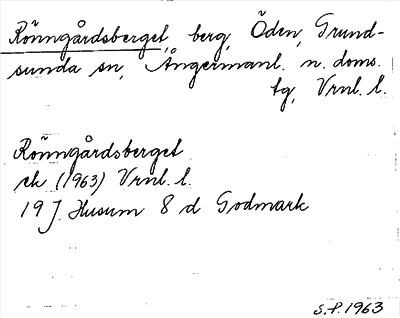 Rönngårdsberget, berg, Öden, Grund-
sunda sn, Ångermanl. n. doms.
tg, Vrnl. l.
Rönngårdsberget
ek (1963) Vrnl. l.
19 J Husum 8 d Godmark
S.P. 1963